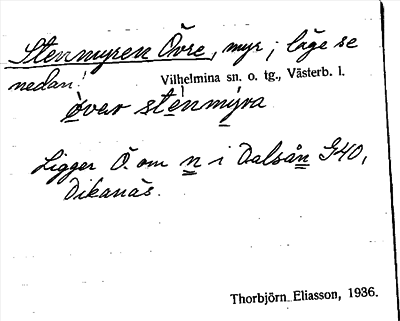 Stenmyren Övre, myr; läge se
nedan!
Vilhelmina sn. o. tg., Västerb. l.
över stenmyra
Ligger Ö. om n i Dalsån G40,
Dikanäs.
Thorbjörn Eliasson, 1936.